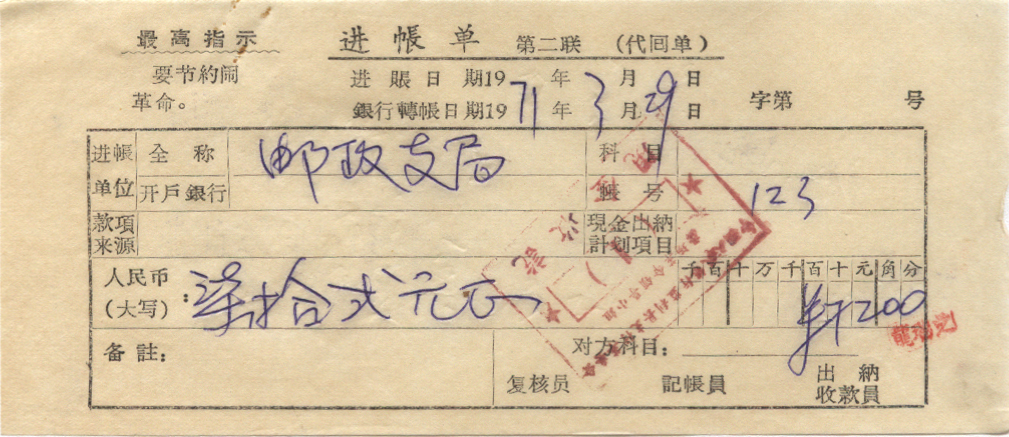 最高指示
要节約闹
革命。
进帳单 第二联 （代回单）
进賬日期1971年3月29日
銀行轉帳日期1971年3月29日
字第 号
进帳单位
全称 邮政支局
科目
开戶銀行
帳号 123
款項来源
現金出納計划項目
人民币（大写）：柒拾弍元正
千百十万千百十元角分
¥7200
备註：
对方科目：
复核员 記帳員 出納收款員